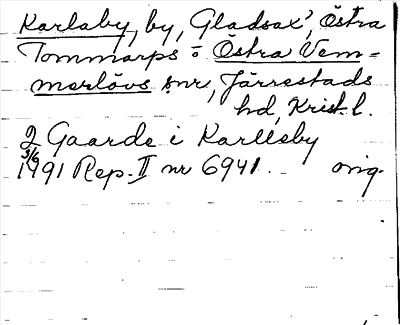 Karlaby, by, Gladsax', Östra
Tommarps o Östra Vem-
merlövs snr, Järrestads
hd, Krist. l.
2 Gaarde i Karllsby
3/6
1491 Rep. II nr 6941. orig.